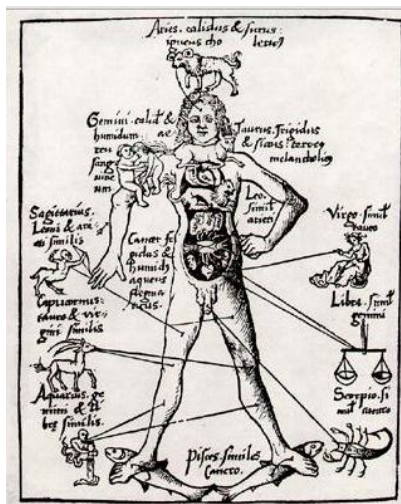 Aries. calidus & siccus:
igneus cho
lericus
Gemini. calid &
humidum. ae
reu
sang
uine
um
Taurus. frigidus
& siccus: terreus
melancholicus
Leo.
simil
arieti
Sagittarius.
Leoni & arie
ti similis
Cancer fri
gidus &
humidus
aqueus
flegma
ticus.
Virgo. simil
tauro
Capricornus.
tauro & vir
gini similis
Libra. simil
gemini
Aquarius. ge
mini & li
bre similis.
Scorpio. si
mil cancro
Pisces. similes
Cancro.